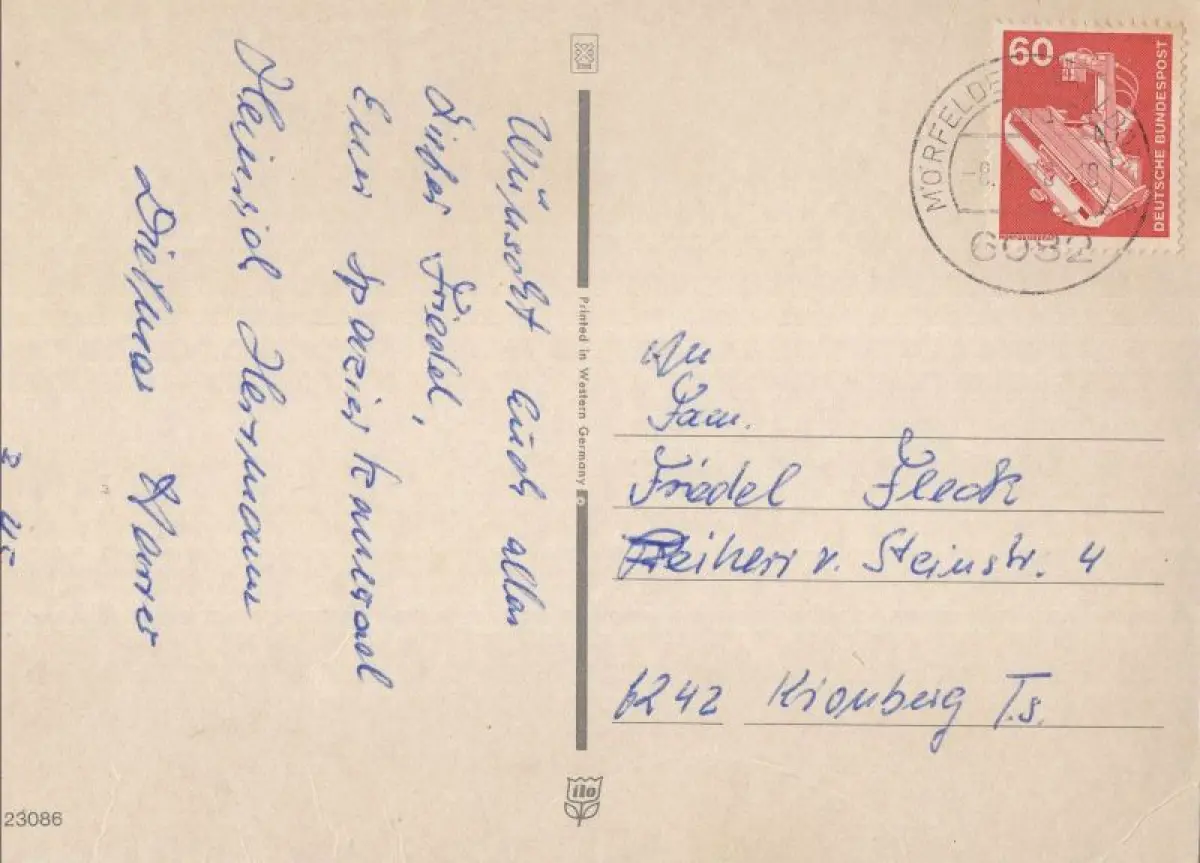 Wünscht Euch allen
Lieber Friedel,
Euer Spezier Kamerad
Heinrich Herrmann
Dietmar
Printed in Western Germany
ilo
23086
60
DEUTSCHE BUNDESPOST
MÖRFELDEN
6082
An
Fam.
Friedel Fleck
Freiherr v. Steinstr. 4
6242 Kronberg Ts.